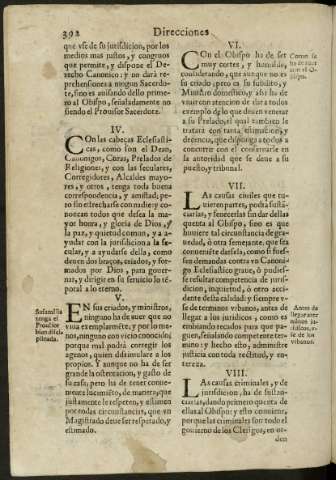 392
Direcciones
que vse de su jurisdicion, por los
medios mas justos, y congruos
que permite, y dispone el De-
recho Canonico: y no darà re-
prehensiones à ningun Sacerdo-
te, sino es avisando dello prime-
ro al Obispo, señaladamente no
siendo el Provisor Sacerdote.
IV.
CON las cabeças Eclesiasti-
cas, como son el Dean,
Canonigos, Curas, Prelados de
Religiones, y con las seculares,
Corregidores, Alcaldes mayo-
res, y otros, tenga toda buena
correspondencia, y amistad; pe-
ro sin estrecharse con nadie: y co-
nozcan todos que desea la ma-
yor honra, y gloria de Dios, y
la paz, y quietud comun, y a a-
yudar con la jurisdicion a la se-
cular, y a ayudarse della, como
deven dos braços, criados, y for-
mados por Dios, para gover-
nar, y dirigir en su servicio lo té-
poral a lo eterno.
V.
EN sus criados, y ministros,
ninguno ha de aver que no
viva exemplarmête, y por lo me-
nos, ninguno con vicio conocido;
porque mal podrà corregir los
agenos, quien dissimulare a los
propios. Y aunque no ha de ser
grande la ostentacion, y gasto de
su casa; pero ha de tener conve-
niente lucimiéto, de manera, que
justamente le respeten, y estimen
por todas circunstancias, que vn
Magistrado deve ser respetado, y
estimado.
Su familia
tenga el
Provisor
bien disci-
plinada.
VI.
CON el Obispo ha de ser
muy cortès, y humilde,
considerando, que aunque no es
su criado; pero es su subdito, y
Ministro domestico, y ahà de dar
exemplo de lo que deven venerar
a su Prelado, el qual tambien le
tratarà con tanta estimacion, y
decencia, que disponga a todos a
concurrir con el conservarse en
la autoridad que se deve a su
puesto, y tribunal.
Como se
ha de aver
con el O-
bispo.
VII.
LAS causas civiles que tu-
vieren partes, podrà susta-
ciarlas, y fenecerlas sin dar dellas
quenta al Obispo, sino es que
huviere tal circunstancia de grave-
dad, ò otra semejante, que sea
conveniéte darsela, como si fues-
sen demandas contra vn Canoni-
go Eclesiastico grave, ò pudies-
se resultar competencia de juris-
dicion, inquietud, ò otro acci-
dente desta calidad: y siempre v-
se de terminos vrbanos, antes de
llegar a los juridicos; como es
embiando recados para que pa-
guen, señalando competente ter-
mino: y hecho esto, administre
justicia con toda rectitud, y en-
tereza.
Antes de
llegar a ter-
minos ju-
ridicos, v-
se de los
vrbanos.
VIII.
LAS causas criminales, y de
jurisdicion, ha de sustan-
ciarlas, dando primero quenta de
ellas al Obispo: y esto conviene,
porque las criminales son todo el
govierno de los Clerigos, en or-
den